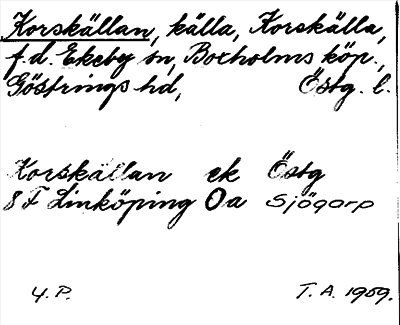 Korskällan, källa, Korskälla,
f.d. Ekeby sn, Boxholms köp.,
Göstrings hd, Östg. l.
Korskällan ek Östg
8 F Linköping Oa Sjögarp
4. P. T. A. 1959.